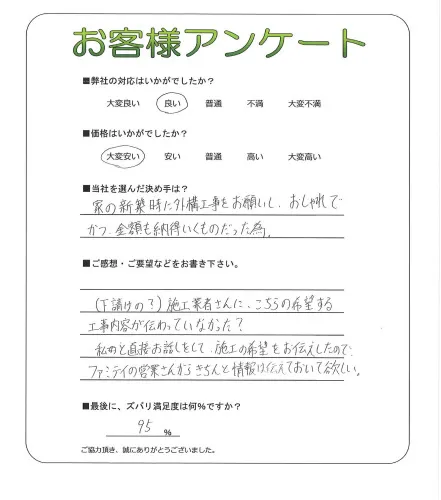 お客様アンケート
■弊社の対応はいかがでしたか？
大変良い 良い 普通 不満 大変不満
■価格はいかがでしたか？
大変安い 安い 普通 高い 大変高い
■当社を選んだ決め手は？
家の新築時に外構工事をお願いし、おしゃれで
かつ、金額も納得いくものだった為。
■ご感想・ご要望などをお書き下さい。
(下請けの？) 施工業者さんに、こちらの希望する
工事内容が伝わっていなかった？
私めと直接お話しをして、施工の希望をお伝えしたので、
ファミテイの営業さんからきちんと情報は伝えておいて欲しい。
■最後に、ズバリ満足度は何%ですか？
95 %
ご協力頂き、誠にありがとうございました。